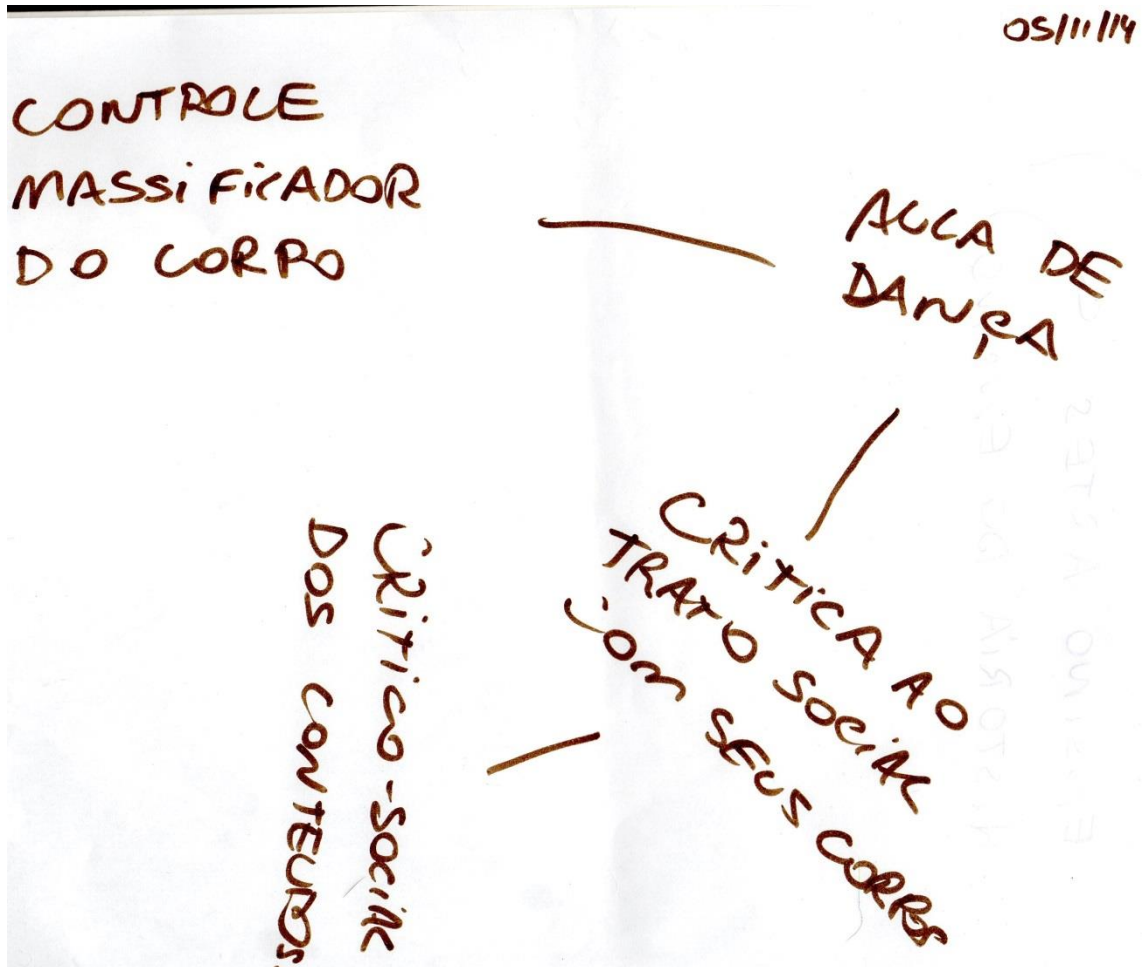 05/11/14
CONTROLE
MASSiFiCADOR
DO CORPO
AULA DE
DANÇA
CRiTiCA AO
TRATO SOCiAL
COM SEUS CORPOS
CRiTiCO-SOCiAL
DOS CONTEUDOS